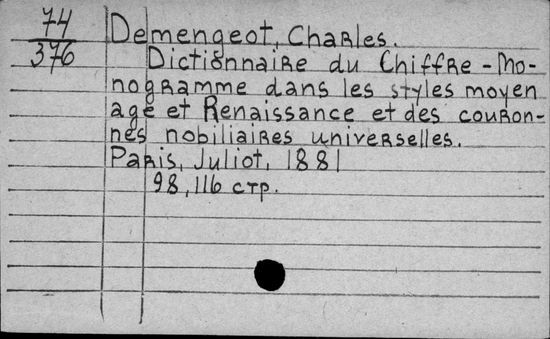 74
376
Demengeot, Charles.
Dictionnaire du Chiffre - Mo-
nogramme dans les styles moyen
age et Renaissance et des couron-
nes nobiliaires universelles.
Paris, Juliot, 1881
98, 116 стр.